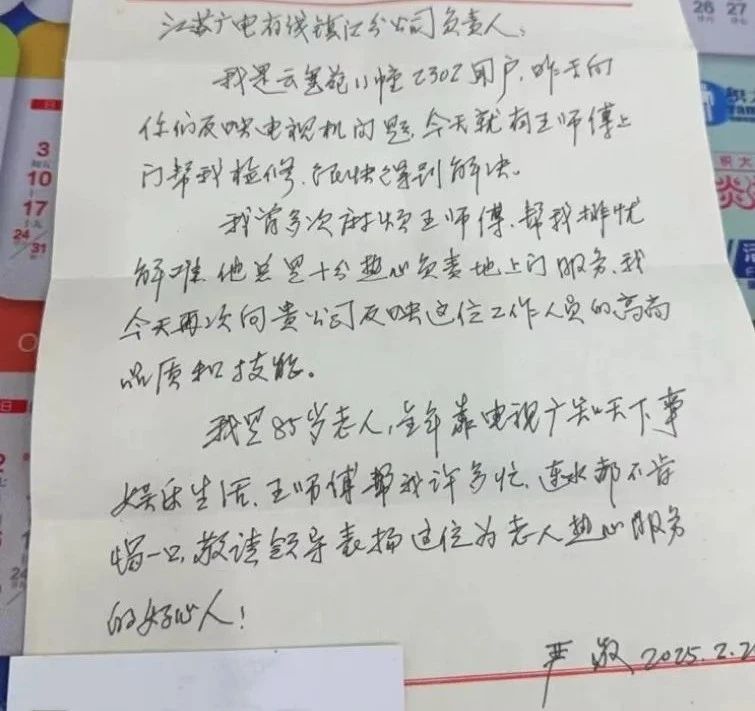 江苏广电有线镇江分公司负责人：
我是云台苑11幢2302用户，昨天向
你们反映电视机问题，今天就有王师傅上
门帮我检修，很快得到解决。
我曾多次麻烦王师傅，帮我排忧
解难他总是十分热心负责地上门服务，我
今天再次向贵公司反映这位工作人员的高尚
品质和技能。
我是85岁老人，全年靠电视广知天下事
娱乐生活，王师傅帮我许多忙，连水都不肯
喝一口，敬请领导表扬这位为老人热心服务
的好心人！
严 敬 2025.2.2
26 27
3
10
17
24
31